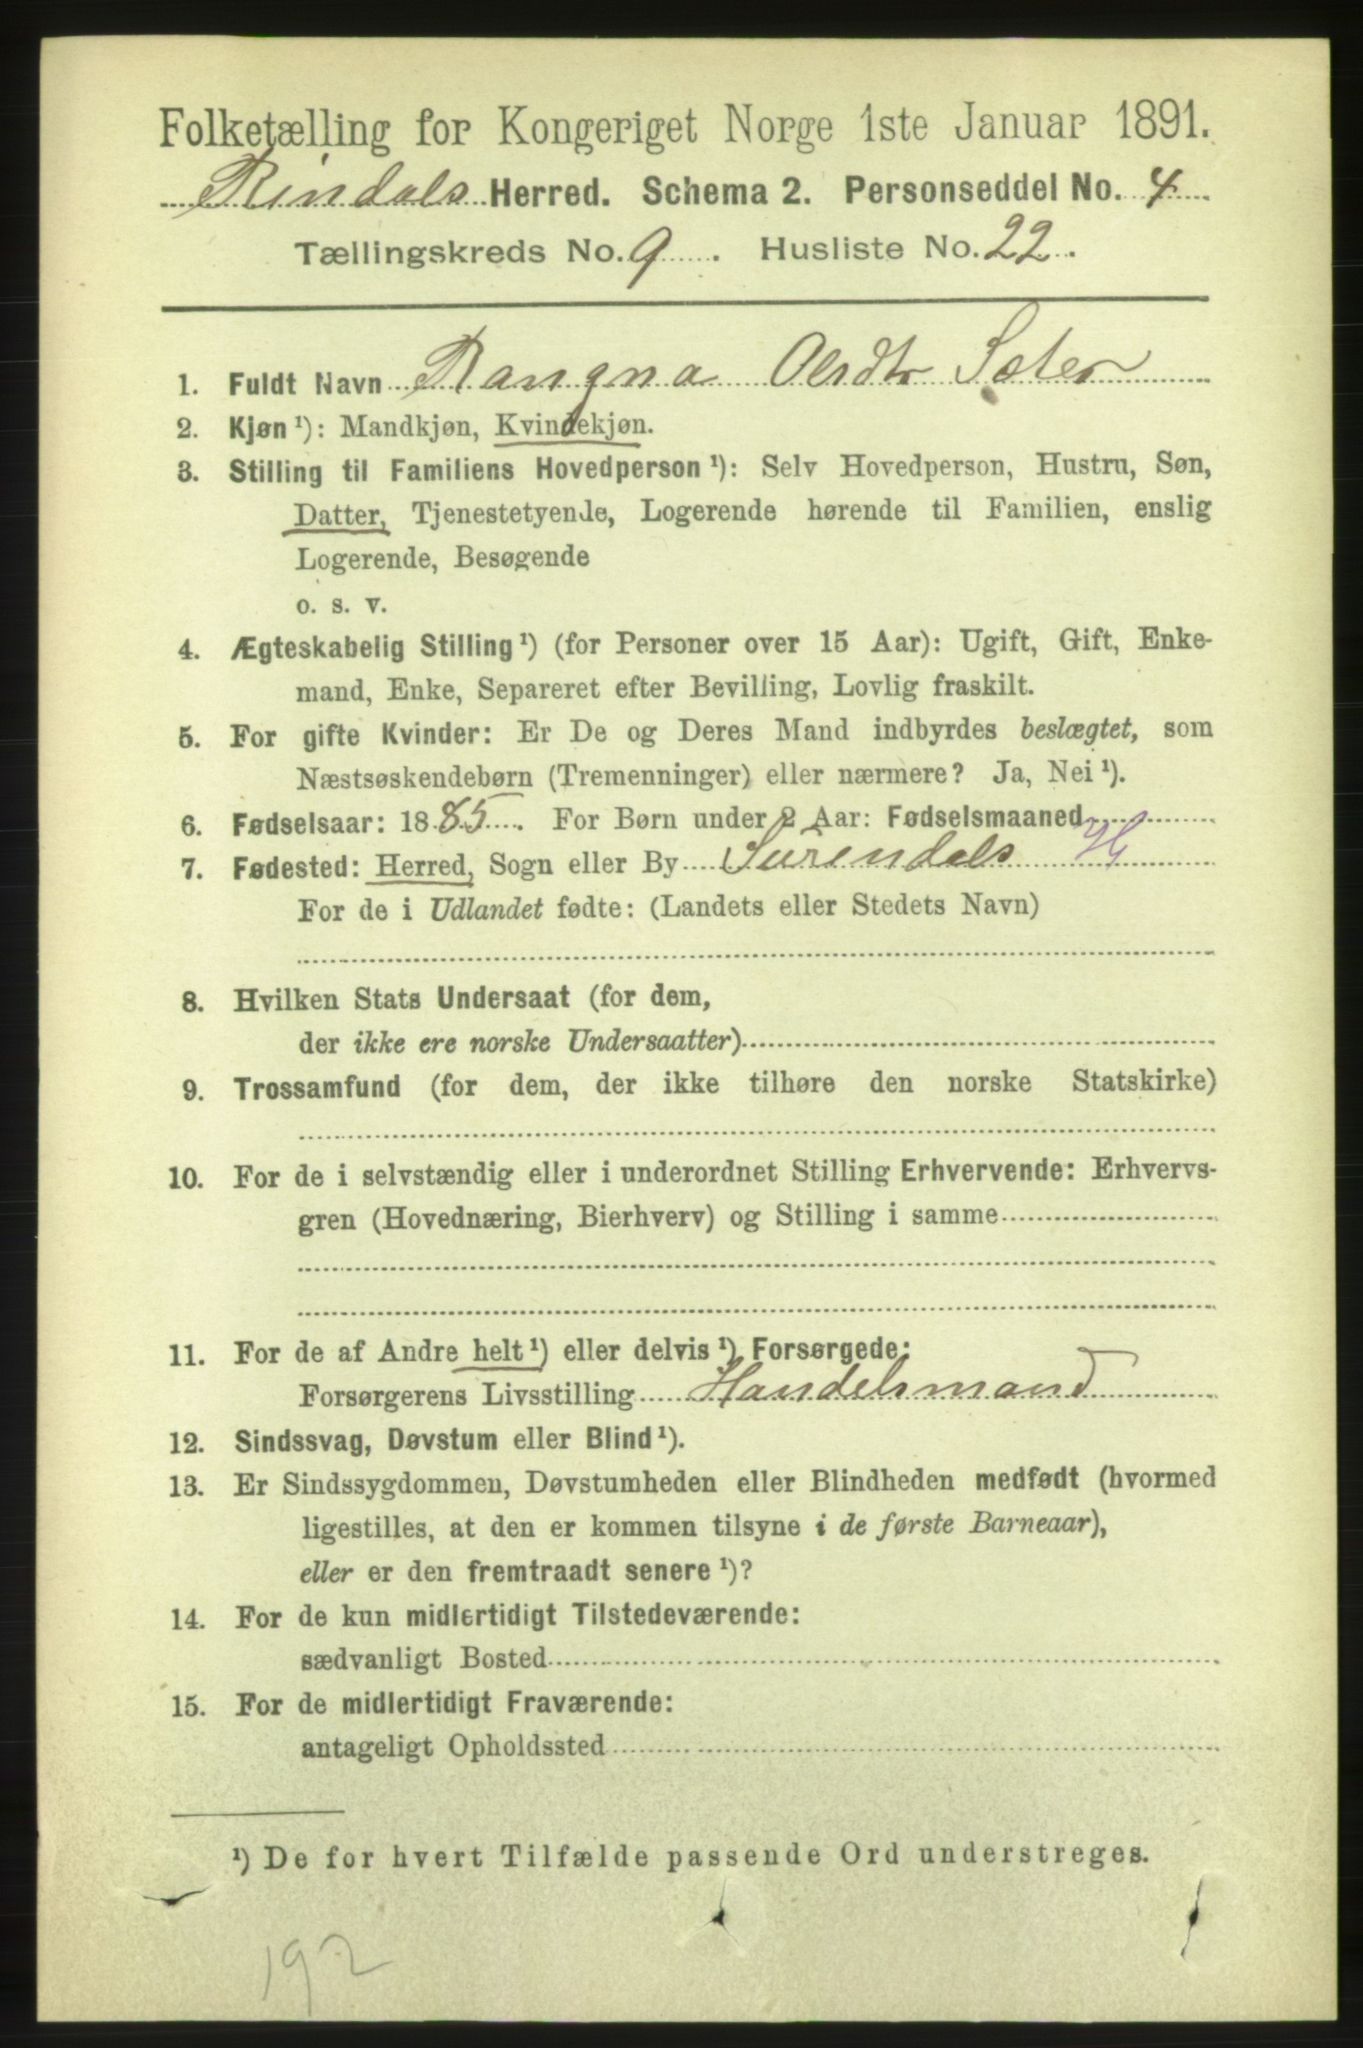 Folketælling for Kongeriget Norge 1ste Januar 1891.
Rindals Herred. Schema 2. Personseddel No. 4
Tællingskreds No. 9. Husliste No. 22.
1. Fuldt Navn Rangna Olsdtr Sæter
2. Kjøn ¹): Mandkjøn, Kvindekjøn.
3. Stilling til Familiens Hovedperson ¹): Selv Hovedperson, Hustru, Søn,
Datter, Tjenestetyende, Logerende hørende til Familien, enslig
Logerende, Besøgende
o. s. v.
4. Ægteskabelig Stilling ¹) (for Personer over 15 Aar): Ugift, Gift, Enke-
mand, Enke, Separeret efter Bevilling, Lovlig fraskilt.
5. For gifte Kvinder: Er De og Deres Mand indbyrdes beslægtet, som
Næstsøskendebørn (Tremenninger) eller nærmere? Ja, Nei ¹).
6. Fødselsaar: 1885. For Børn under 2 Aar: Fødselsmaaned
7. Fødested: Herred, Sogn eller By Surendals H
For de i Udlandet fødte: (Landets eller Stedets Navn)
8. Hvilken Stats Undersaat (for dem,
der ikke ere norske Undersaatter)
9. Trossamfund (for dem, der ikke tilhøre den norske Statskirke)
10. For de i selvstændig eller i underordnet Stilling Erhvervende: Erhvervs-
gren (Hovednæring, Bierhverv) og Stilling i samme
11. For de af Andre helt ¹) eller delvis ¹) Forsørgede:
Forsørgerens Livsstilling Handelsmand
12. Sindssvag, Døvstum eller Blind ¹).
13. Er Sindssygdommen, Døvstumheden eller Blindheden medfødt (hvormed
ligestilles, at den er kommen tilsyne i de første Barneaar),
eller er den fremtraadt senere ¹)?
14. For de kun midlertidigt Tilstedeværende:
sædvanligt Bosted
15. For de midlertidigt Fraværende:
antageligt Opholdssted
¹) De for hvert Tilfælde passende Ord understreges.
192